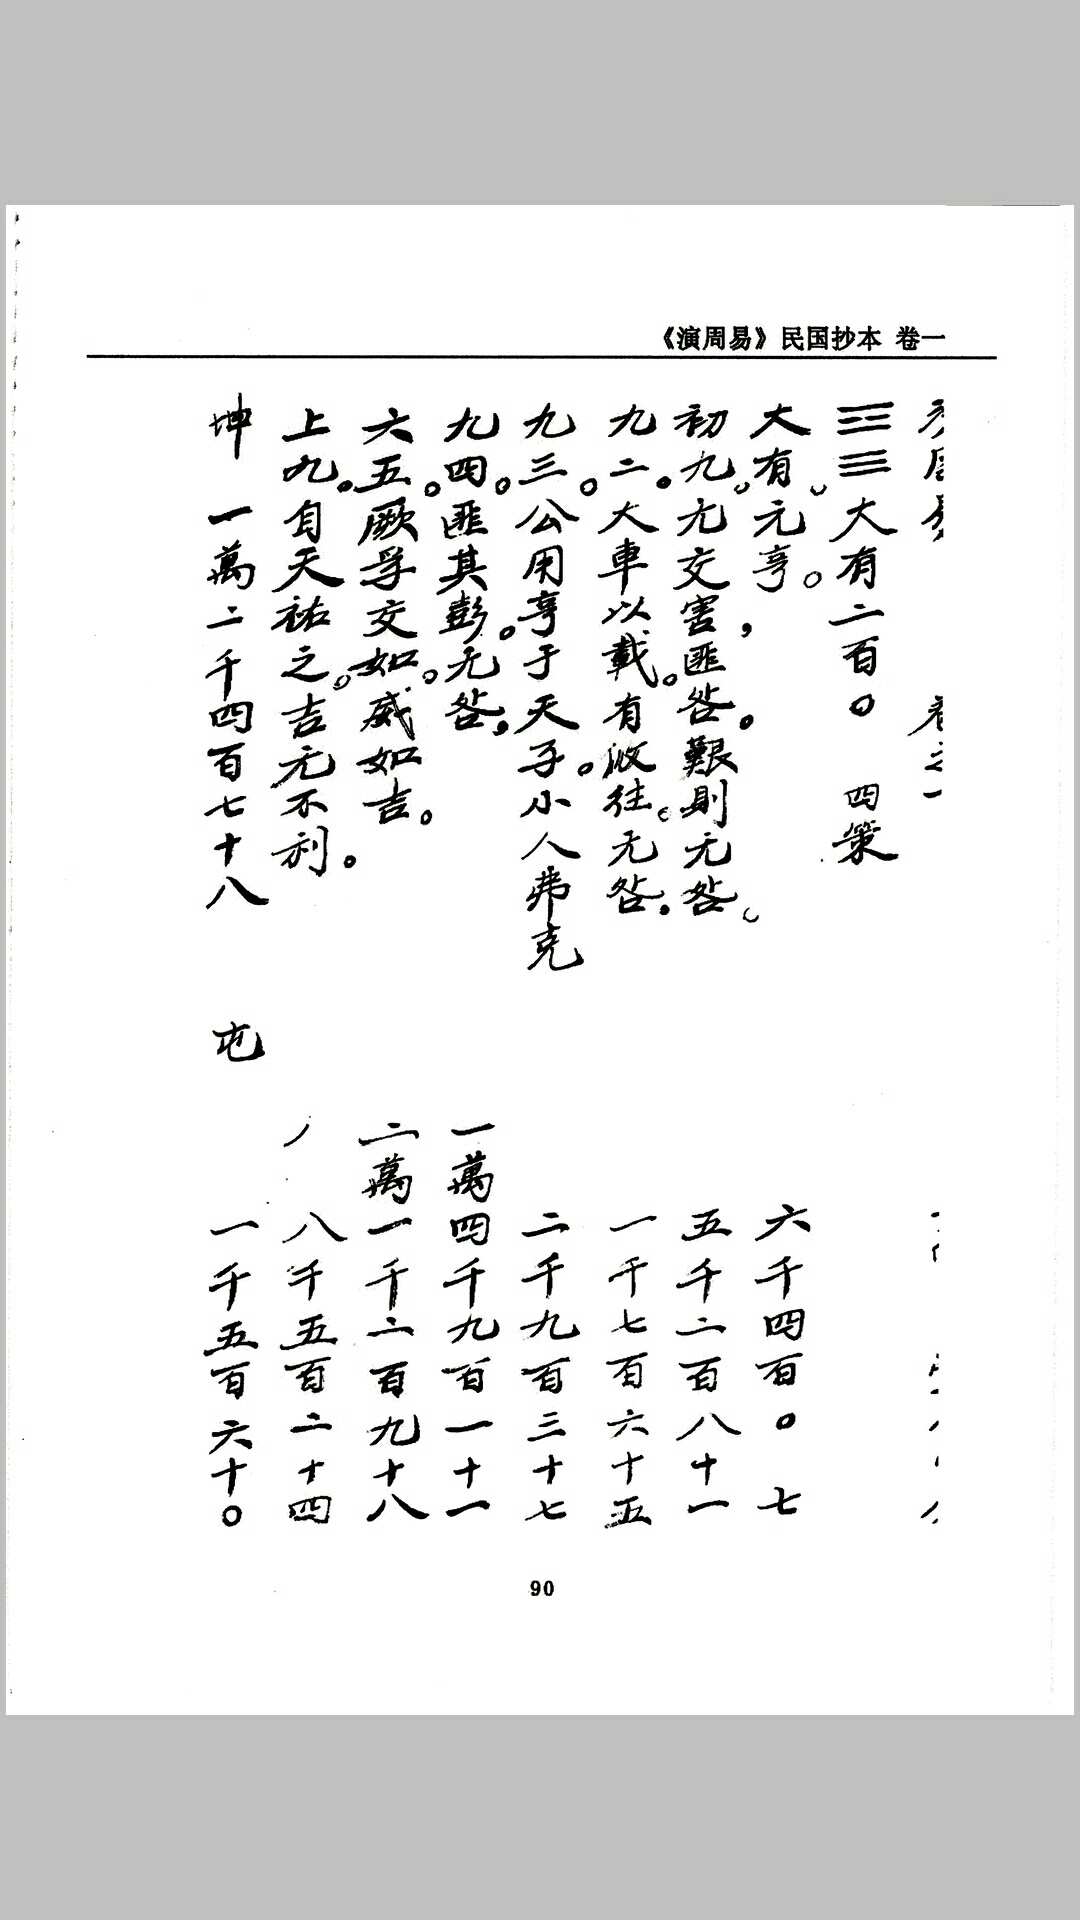 《演周易》民国抄本 卷一
卷之一
大有二百〇四策
大有。元亨。 六千四百〇七
初九。无交害,匪咎。艱則无咎。 五千二百八十一
九二。大車以載。有攸往。无咎。 一千七百六十五
九三。公用亨于天子。小人弗克 二千九百三十七
九四。匪其彭。无咎, 一萬四千九百一十一
六五。厥孚交如。威如吉。 二萬一千二百九十八
上九。自天祐之。吉无不利。 八千五百二十四
坤 一萬二千四百七十八 屯 一千五百六十〇
90